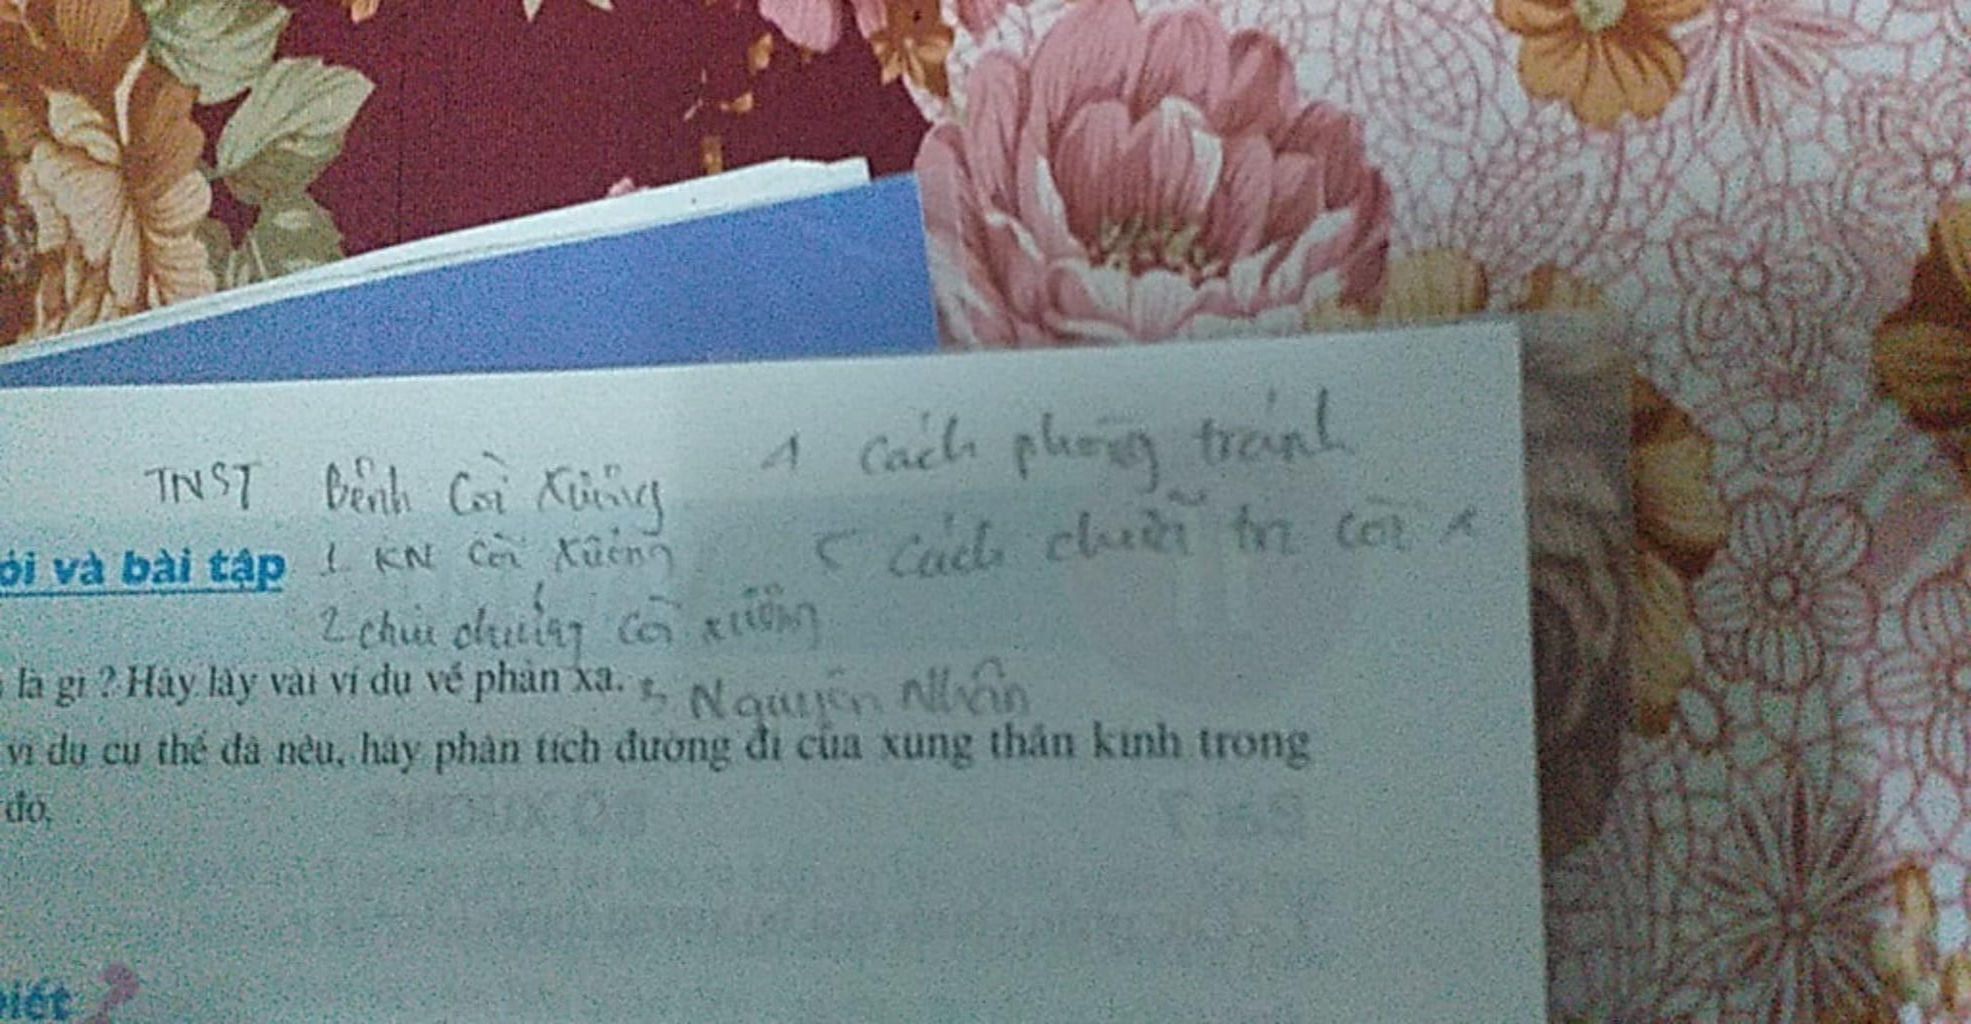 TNST Bệnh Còi Xương
1 KN Còi Xương
2 chiu chứng còi xương
3 Nguyên Nhân
4 Cách phòng tránh
5 Cách chữa trị còi x
ỏi và bài tập
là gì ? Hãy lấy vài ví dụ về phản xạ.
ví dụ cụ thể đã nêu, hãy phân tích đường đi của xung thần kinh trong
đó.
iết